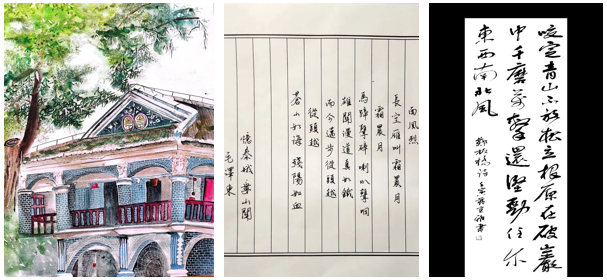 西風烈
長空雁叫霜晨月
霜晨月
馬蹄聲碎喇叭聲咽
雄關漫道真如鐵
而今邁步從頭越
從頭越
蒼山如海殘陽如血
憶秦娥 婁山關
毛澤東
咬定青山不放松立根原在破巖
中千磨萬擊還堅勁任尔
東西南北風
鄭板橋詩